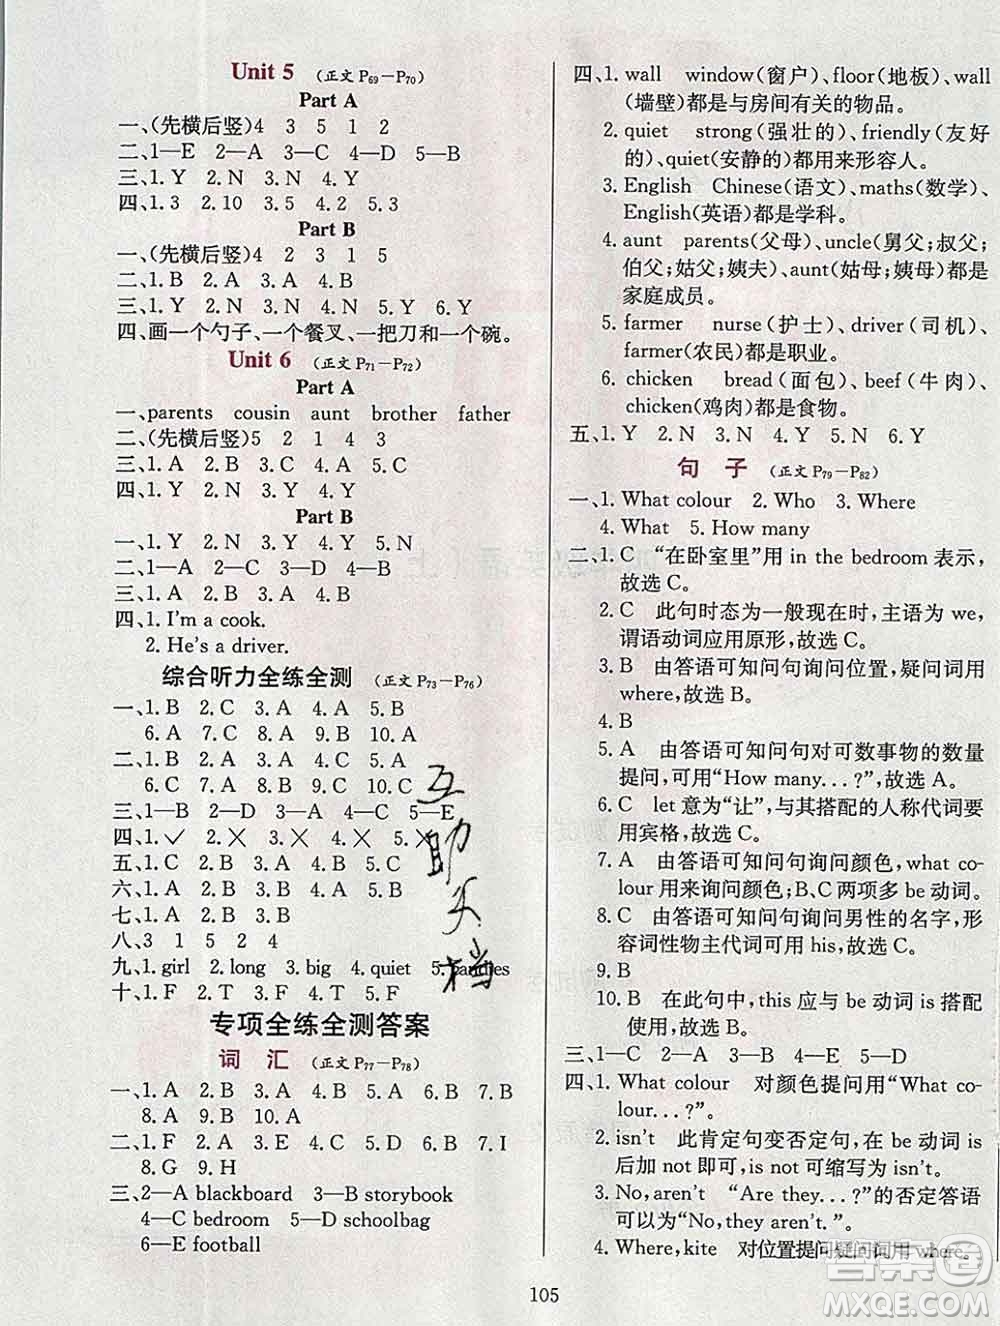 Unit 5 (正文 P69—P70)
Part A
一、(先横后竖)4 3 5 1 2
二、1—E 2—D 3—C 4—D 5—B
三、1. Y 2. N 3. N 4. Y
四、1. 3 2. 10 3. 5 4. 2 5. 3
Part B
一、(先横后竖)4 2 3 1 5
二、1. B 2. A 3. A 4. B
三、1. Y 2. N 3. N 4. N 5. Y 6. Y
四、画一个勺子、一个餐叉、一把刀和一个碗。
Unit 6 (正文 P71—P72)
Part A
一、parents cousin aunt brother father
二、(先横后竖)5 2 1 4 3
三、1. A 2. B 3. B 4. A
四、1. Y 2. N 3. Y 4. N
Part B
一、1. Y 2. N 3. Y 4. Y 5. N
二、1. A 2. A 3. B 4. B 5. A
三、1. A 2. B 3. A 4. B
四、1. I'm a cook.
2. He's a driver.
综合听力全练全测 (正文 P73—P76)
一、1. B 2. C 3. A 4. A 5. B
6. A 7. C 8. A 9. B 10. A
二、1. B 2. B 3. A 4. A 5. A
6. C 7. C 8. A 9. B 10. C
三、1—B 2—D 3—A 4—C 5—E
四、1. ✓ 2. × 3. × 4. × 5. ×
五、1. C 2. B 3. A 4. B 5. C
六、1. A 2. B 3. A 4. B 5. B
七、1. A 2. B 3. A 4. A 5. B
八、3 1 5 2 4
九、1. girl 2. long 3. big 4. quiet 5.
十、1. F 2. T 3. F 4. F 5. T
专项全练全测答案
词 汇 (正文 P77—P78)
一、1. A 2. B 3. A 4. A 5. B 6. B 7. B
8. A 9. B 10. A
二、1. F 2. A 3. D 4. C 5. B 6. E 7. I
8. G 9. H
三、2—A blackboard 3—B storybook
4—C bedroom 5—D schoolbag
6—E football
四、1. wall window(窗户), floor(地板), wall
(墙壁)都是与房间有关的物品。
2. quiet strong(强壮的), friendly(友好
的), quiet(安静的)都用来形容人。
3. English Chinese(语文), maths(数学),
English(英语)都是学科。
4. aunt parents(父母), uncle(舅父;叔父;
伯父;姑父;姨夫), aunt(姑母;姨母)都是
家庭成员。
5. farmer nurse(护士), driver(司机),
farmer(农民)都是职业。
6. chicken bread(面包), beef(牛肉),
chicken(鸡肉)都是食物。
五、1. Y 2. N 3. N 4. Y 5. N 6. Y
句 子 (正文 P79—P82)
一、1. What colour 2. Who 3. Where
4. What 5. How many
二、1. C “在卧室里”用 in the bedroom 表示,
故选 C。
2. C 此句时态为一般现在时,主语为 we,
谓语动词应用原形,故选 C。
3. B 由答语可知问句询问位置,疑问词用
where,故选 B。
4. B
5. A 由答语可知问句对可数事物的数量
提问,可用“How many. . .?”,故选 A。
6. C let 意为“让”,与其搭配的人称代词要
用宾格,故选 C。
7. A 由答语可知问句询问颜色,what co-
lour 用来询问颜色;B、C 两项多 be 动词。
8. C 由答语可知问句询问男性的名字,形
容词性物主代词可用 his,故选 C。
9. B
10. B 在此句中,this 应与 be 动词 is 搭配
使用,故选 B。
三、1—C 2—A 3—E 4—B 5—D
四、1. What colour 对颜色提问用“What co-
lour. . .?”。
2. isn't 此肯定句变否定句,在 be 动词 is
后加 not 即可,is not 可缩写成 isn't。
3. No, aren't “Are they. . .?”的否定答语
可以为“No, they aren't.”。
4. Where, kite 对位置提问疑问词用 where。
互助文档
105
答案圈
MXQE.COM